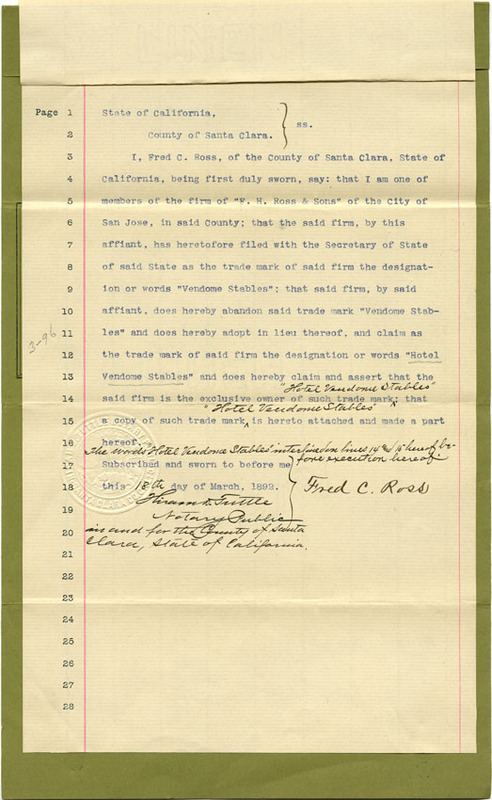 Page 1 State of California,
ss.
2 County of Santa Clara.
3 I, Fred C. Ross, of the County of Santa Clara, State of
4 California, being first duly sworn, say: that I am one of
5 members of the firm of "F. H. Ross & Sons" of the City of
6 San Jose, in said County; that the said firm, by this
7 affiant, has heretofore filed with the Secretary of State
8 of said State as the trade mark of said firm the designat-
9 ion or words "Vendome Stables"; that said firm, by said
10 affiant, does hereby abandon said trade mark "Vendome Stab-
3-96
11 les" and does hereby adopt in lieu thereof, and claim as
12 the trade mark of said firm the designation or words "Hotel
13 Vendome Stables" and does hereby claim and assert that the
"Hotel Vendome Stables"
14 said firm is the exclusive owner of such trade mark; that
"Hotel Vendome Stables"
15 a copy of such trade mark is hereto attached and made a part
16 hereof.
The words "Hotel Vendome Stables" interlined on lines 14 and 15 hereof be-
fore execution hereof.
17 Subscribed and sworn to before me
18 this 18th day of March, 1892.
Fred C. Ross
Hiram D. Tuttle
19 Notary Public
20 in and for the County of Santa
Clara, State of California.
21
22
23
24
25
26
27
28